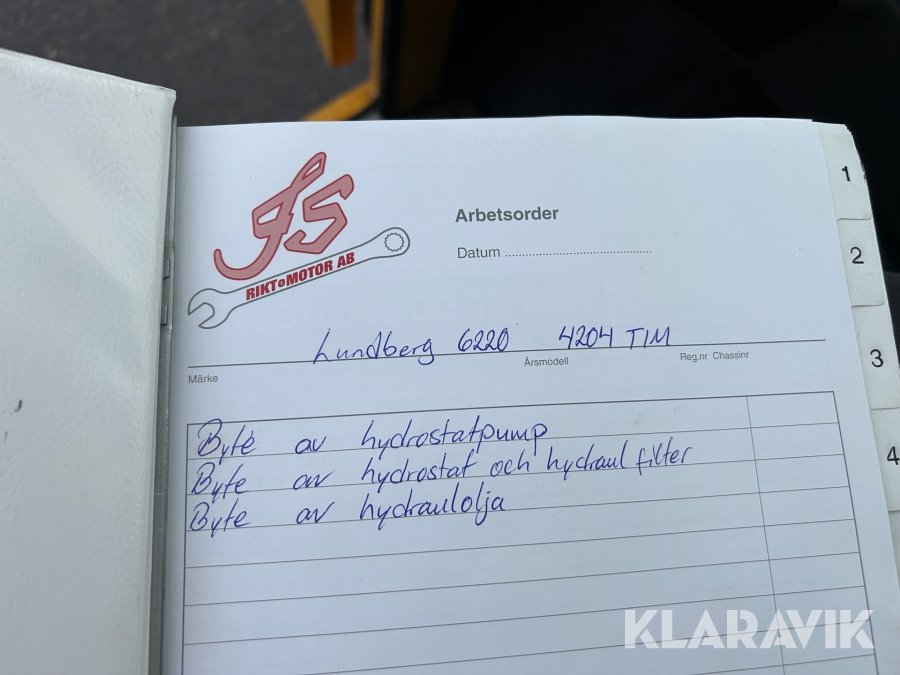 JS
RIKToMOTOR AB
Arbetsorder
Datum
Lundberg 6220 4204 TIM
Märke
Årsmodell
Reg.nr Chassinr
Byte av hydrostatpump
Byte av hydrostat och hydraul filter
Byte av hydraulolja
1
2
3
4
KLARAVIK